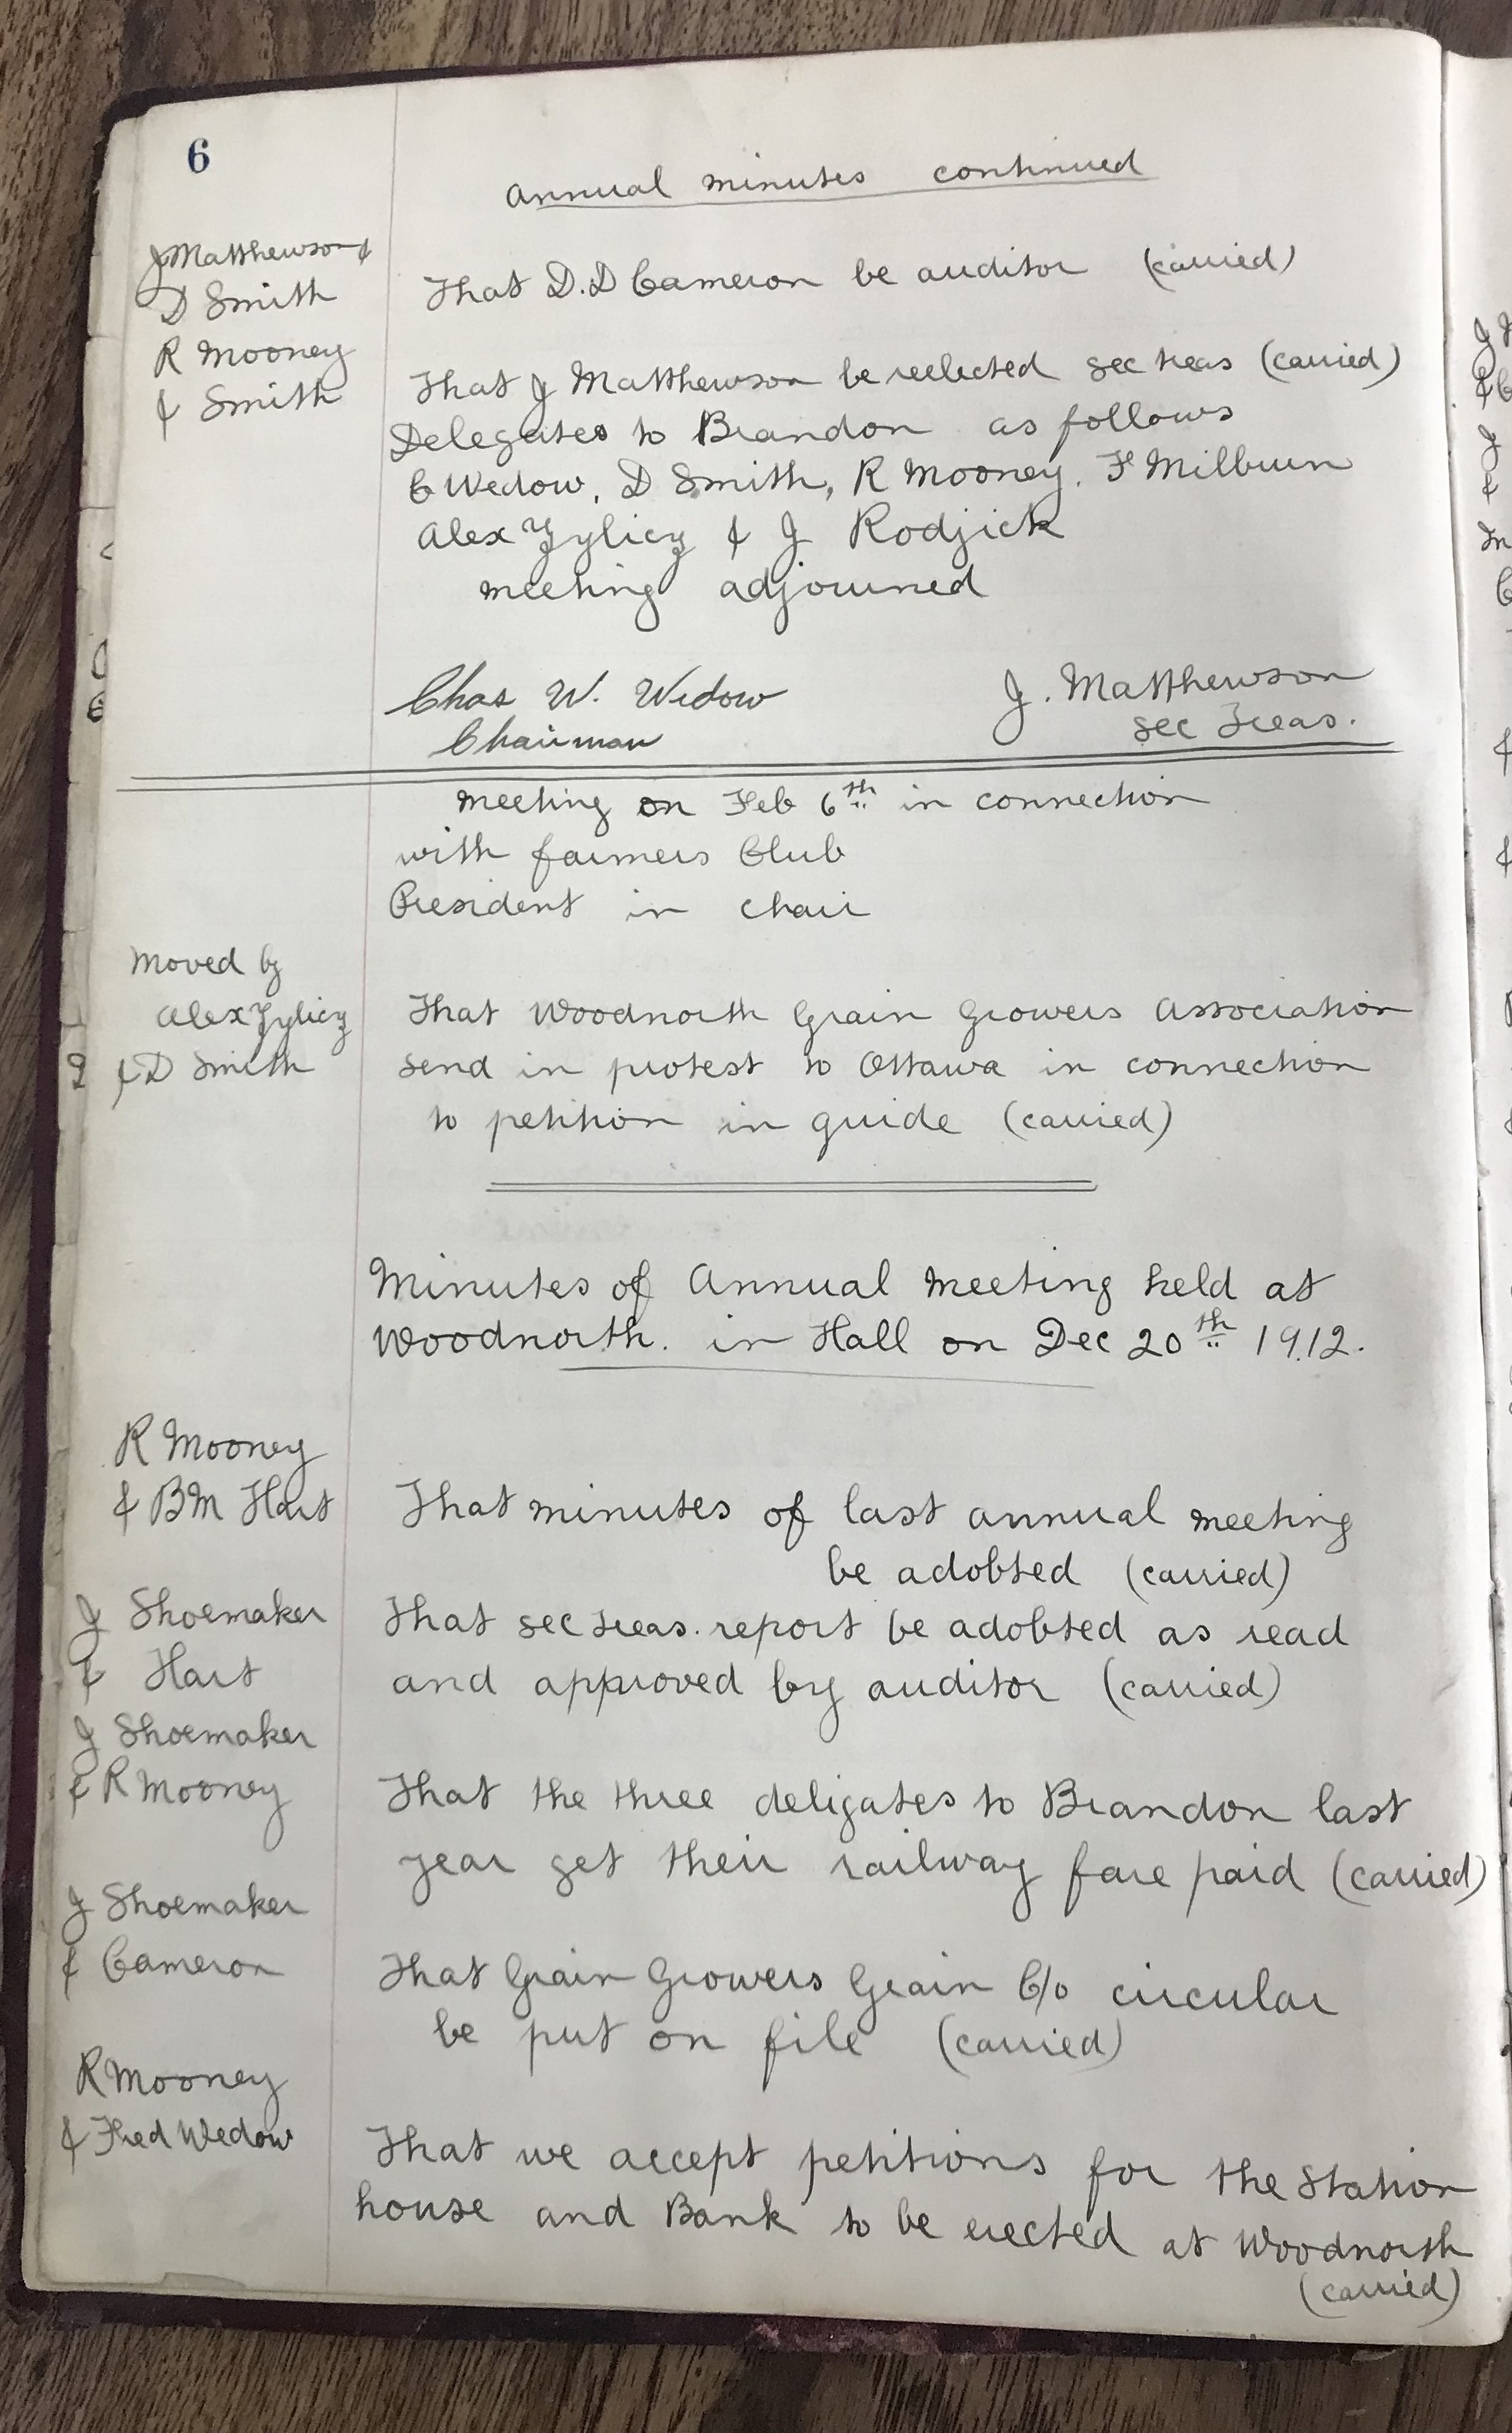 6
Annual minutes continued
J Matthewson &
D Smith
That D.D Cameron be auditor (carried)
R Mooney
& Smith
That J Matthewson be reelected sec treas (carried)
Delegates to Brandon as follows
C Wedow, D Smith, R Mooney, F Milburn
Alex Zylicz & J Rodjick
meeting adjourned
Chas W. Wedow
Chairman
J. Matthewson
sec Treas.
Meeting on Feb 6th in connection
with farmers Club
President in chair
Moved by
Alex Zylicz
& D Smith
That Woodnorth Grain Growers Association
send in protest to Ottawa in connection
to petition in guide (carried)
Minutes of Annual Meeting held at
Woodnorth. in Hall on Dec 20th 1912.
R Mooney
& BM Hart
That minutes of last annual meeting
be adobted (carried)
J Shoemaker
& Hart
That sec treas. report be adobted as read
and approved by auditor (carried)
J Shoemaker
& R Mooney
That the three deligates to Brandon last
year get their railway fare paid (carried)
J Shoemaker
& Cameron
That Grain Growers Grain C/o circular
be put on file (carried)
R Mooney
& Fred Wedow
That we accept petitions for the Station
house and Bank to be erected at Woodnorth
(carried)